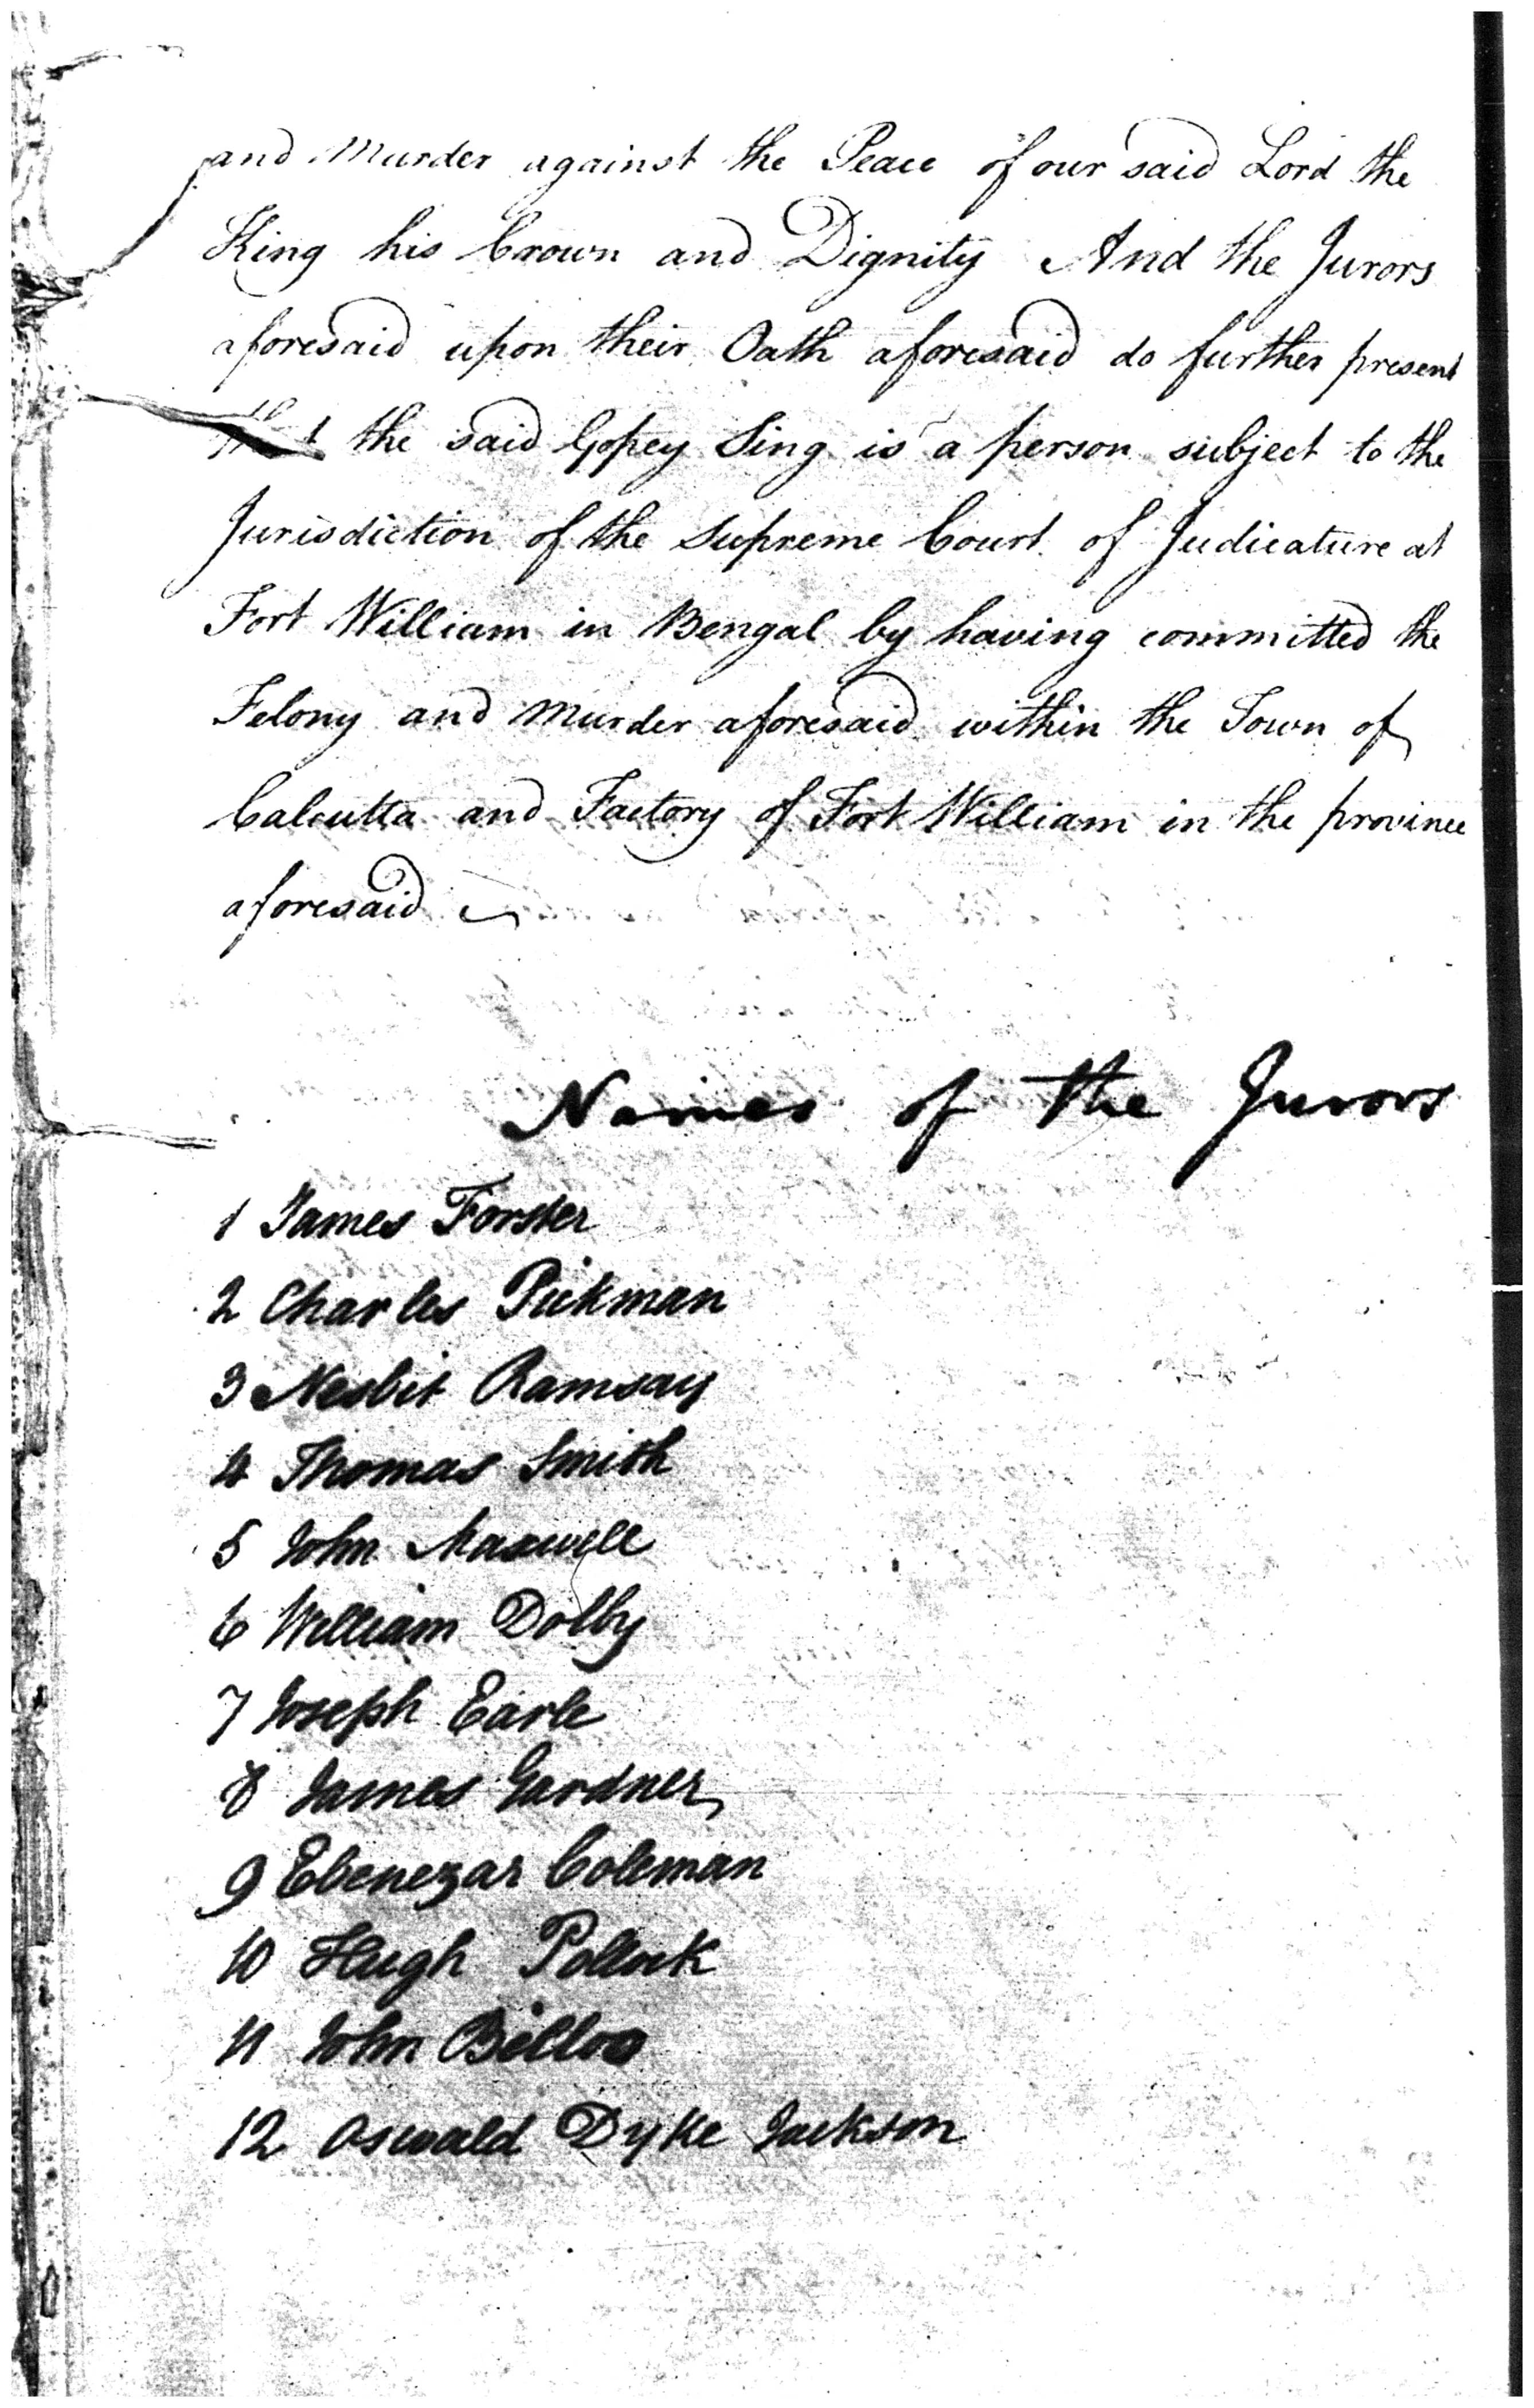 and Murder against the Peace of our said Lord the
King his Crown and Dignity And the Jurors
aforesaid upon their Oath aforesaid do further present
that the said Gopey Sing is a person subject to the
Jurisdiction of the Supreme Court of Judicature at
Fort William in Bengal by having committed the
Felony and Murder aforesaid within the Town of
Calcutta and Factory of Fort William in the province
aforesaid
Names of the Jurors
1 James Forster
2 Charles Pickman
3 Nesbit Ramsay
4 Thomas Smith
5 John Maxwell
6 William Dolby
7 Joseph Earle
8 James Gardner
9 Ebenezar Coleman
10 Hugh Pollock
11 John
12 Oswald Dyke Jackson